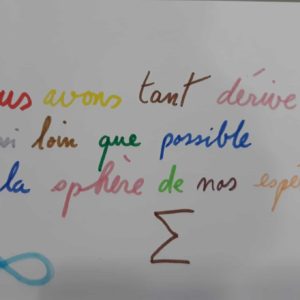 us avons tant dérive
ui loin que possible
la sphère de nos espé
Σ